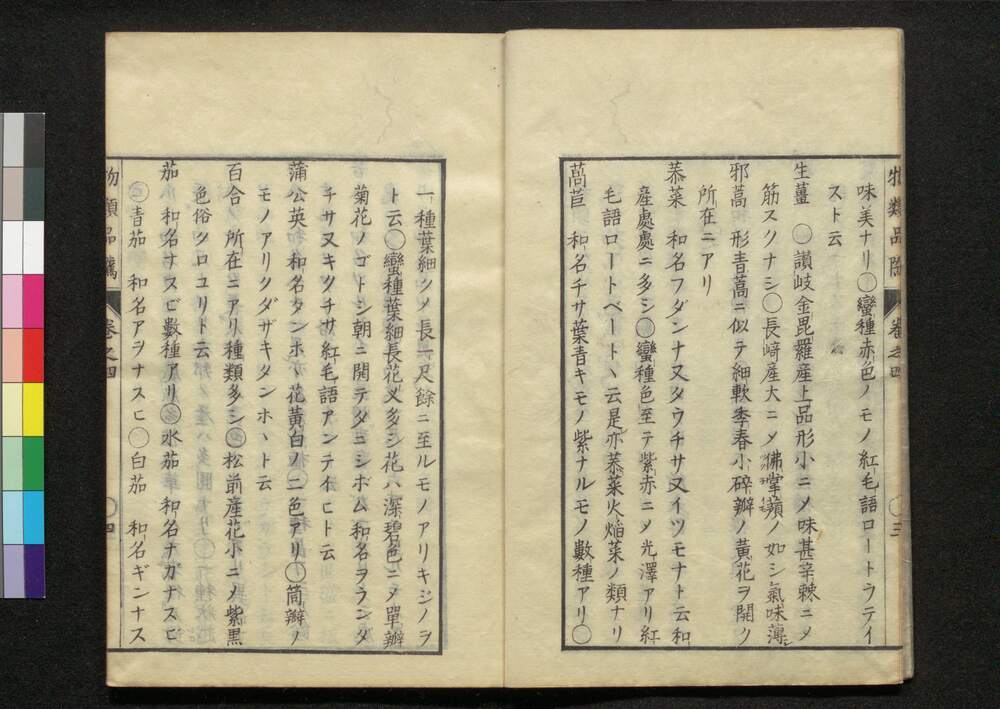 物類品隲
卷之四
三
味美ナリ〇蠻種赤色ノモノ紅毛語ロートラテイ
スト云
生薑 〇讃岐金毘羅産上品形小ニメ味甚辛辣ニメ
筋スクナシ〇長崎産大ニメ佛掌薯ノ如シ氣味薄シ
邪蒿 形青蒿ニ似テ細軟季春小碎瓣ノ黄花ヲ開ク
所在ニアリ
菾菜 和名フダンナ又タウチサ又イツモナト云和
産處處ニ多シ〇蠻種色至テ紫赤ニメ光澤アリ紅
毛語ロートベートヽ云是亦菾菜火焔菜ノ類ナリ
萵苣 和名チサ葉青キモノ紫ナルモノ數種アリ〇
一種葉細クメ長一尺餘ニ至ルモノアリキジノヲ
ト云〇蠻種葉細長花又多シ花ハ深碧色ニメ單瓣
菊花ノゴトシ朝ニ開テタニシボム和名ヲランダ
チサ又キクチサ紅毛語アンテイヒト云
蒲公英 和名タンホヽ花黄白ノ二色アリ〇筒瓣ノ
モノアリクダザキタンホヽト云
百合 所在ニアリ種類多シ〇松前産花小ニメ紫黒
色俗クロユリト云
茄 和名ナスビ數種アリ〇水茄 和名ナガナスビ
〇青茄 和名アヲナスヒ〇白茄 和名ギンナス
物類品隲
卷之四
四